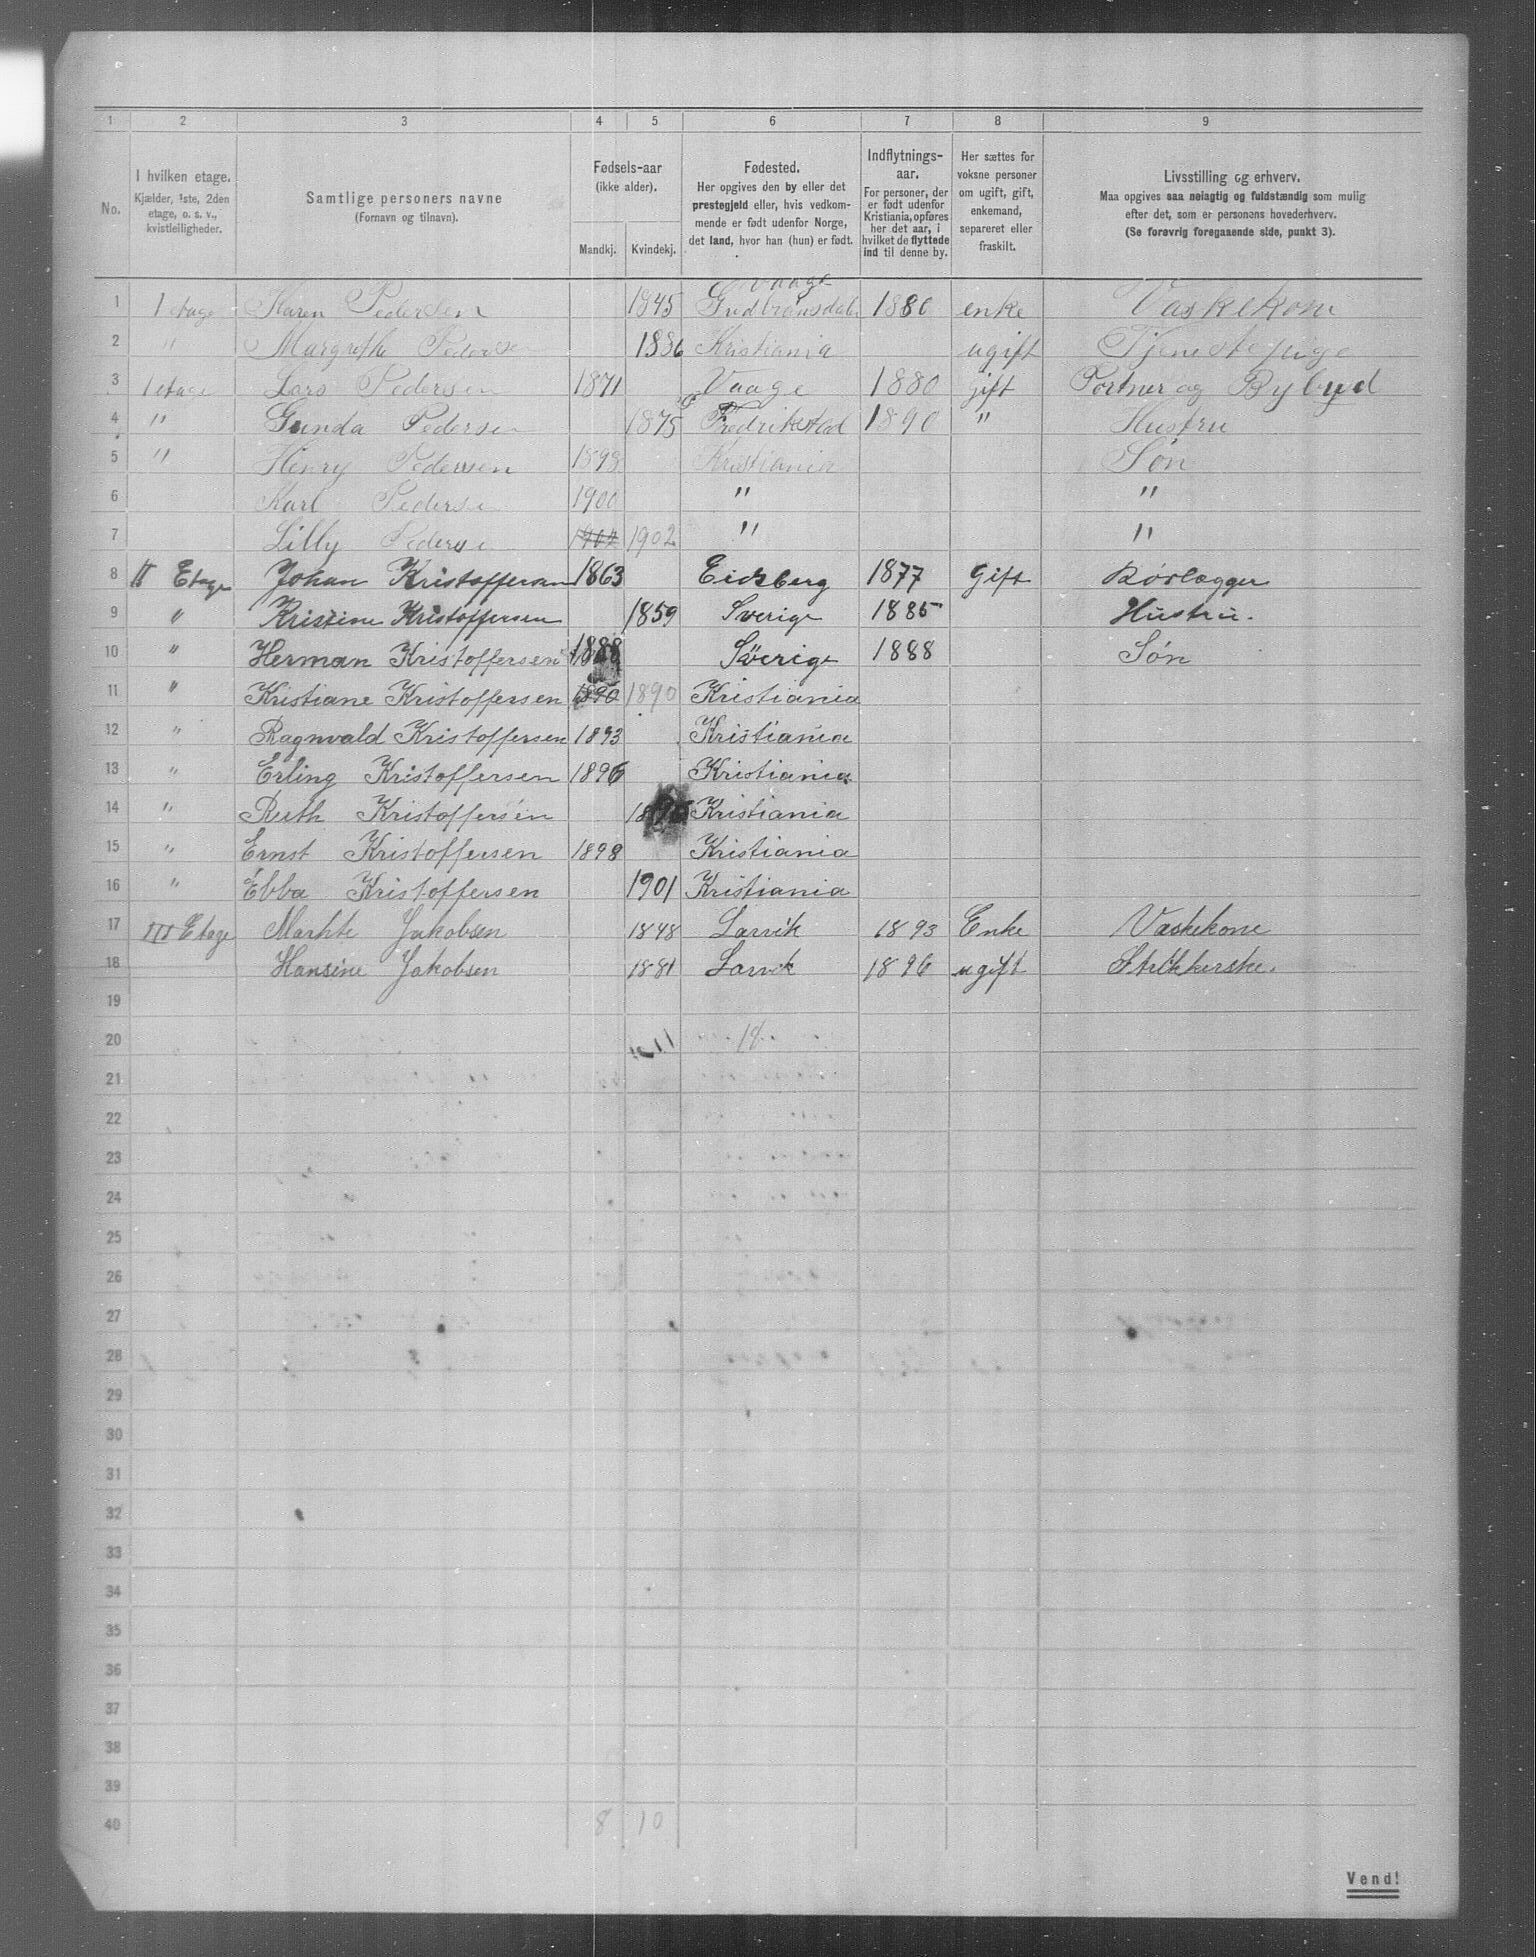 1 2 3 4 5 6 7 8 9
No. | I hvilken etage. Kjælder, 1ste, 2den etage, o. s. v., kvistleiligheder. | Samtlige personers navne (Fornavn og tilnavn). | Fødsels-aar (ikke alder). Mandkj. | Kvindekj. | Fødested. Her opgives den by eller det prestegjeld eller, hvis vedkommende er født udenfor Norge, det land, hvor han (hun) er født. | Indflytnings-aar. For personer, der er født udenfor Kristiania, opføres her det aar, i hvilket de flyttede ind til denne by. | Her sættes for voksne personer om ugift, gift, enkemand, separeret eller fraskilt. | Livsstilling og erhverv. Maa opgives saa nøiagtig og fuldstændig som mulig efter det, som er personens hovederhverv. (Se forøvrig foregaaende side, punkt 3).
1 1 etage Karen Pedersen 1845 Vaage Gudbransdalen 1880 enke Vaskekone
2 " Margrethe Pedersen 1886 Kristiania ugift Tjenestepige
3 1 etage Lars Pedersen 1871 Vaage 1880 Gift Portner og Bybud
4 " Gunda Pedersen 1875 Fredrikstad 1890 " Hustru
5 " Henry Pedersen 1898 Kristiania Søn
6 Karl Pedersen 1900 " "
7 Lilly Pedersen 1902 1902 " "
8 II Etage Johan Kristoffersen 1863 Eidsberg 1877 Gift Rørlægger
9 " Kristine Kristoffersen 1859 Sverige 1885 Hustru.
10 " Herman Kristoffersen 1888 Sverige 1888 Søn
11 " Kristiane Kristoffersen 1890 1890 Kristiania
12 " Ragnvald Kristoffersen 1893 Kristiania
13 " Erling Kristoffersen 1896 Kristiania
14 " Ruth Kristoffersen Kristiania
15 " Ernst Kristoffersen 1898 Kristiania
16 " Ebba Kristoffersen 1901 Kristiania
17 III Etage Marhte Jakobsen 1848 Larvik 1893 Enke Vaskekone
18 Hansine Jakobsen 1881 Larvik 1896 ugift Strikkerske.
19
20 18
21
22
23
24
25
26
27
28
29
30
31
32
33
34
35
36
37
38
39
40 8 10
Vend!